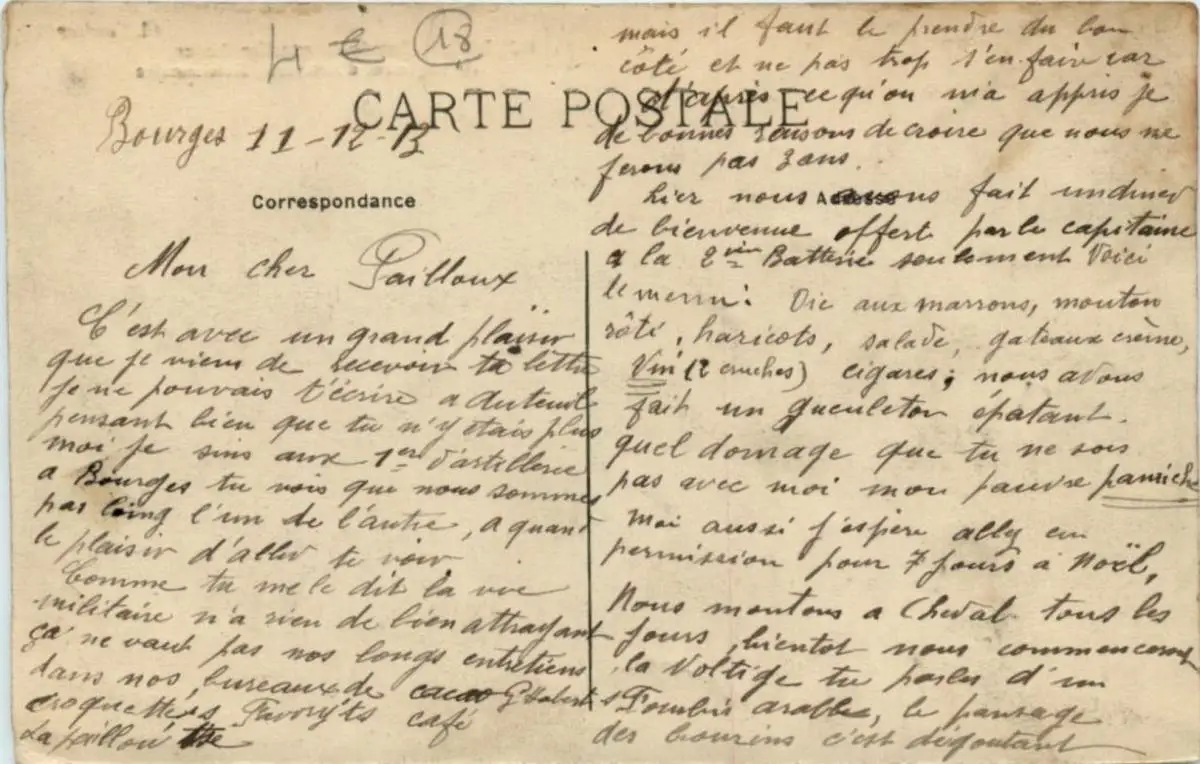 4 € 18
CARTE POSTALE
Bourges 11-12-13
Correspondance
Mon cher Pailloux
C'est avec un grand plaisir
que je viens de recevoir ta lettre
je ne pouvais t'écrire a Auteuil
pensant bien que tu n'y étais plus
moi je suis aux 1er d'artillerie
a Bourges tu vois que nous sommes
pas loing l'un de l'autre, a quant
le plaisir d'aller te voir
Comme tu me le dit la vie
militaire n'a rien de bien attrayant
ça ne vaut pas nos longs entretiens
dans nos bureaux de cacao
croquettes Favoryts café
La paillou
mais il faut le prendre du bon
côté et ne pas trop s'en faire car
d'après ce qu'on m'a appris je
de bonnes raisons de croire que nous ne
ferons pas 3 ans.
Adresse
hier nous avons fait un diner
de bienvenue offert par le capitaine
a la 2ème Batterie seulement Voici
le menu: Oie aux marrons, mouton
rôti, haricots, salade, gateaux crème,
Vin (2 cruches) cigares; nous avons
fait un gueuleton épatant.
quel domage que tu ne sois
pas avec moi mon pauvre
moi aussi j'espère aller en
permission pour 7 jours à Noël,
Nous montons a Cheval tous les
jours, bientot nous commencerons
la Voltige tu parles d'un
arabe, le pansage
des bourins c'est dégoutant